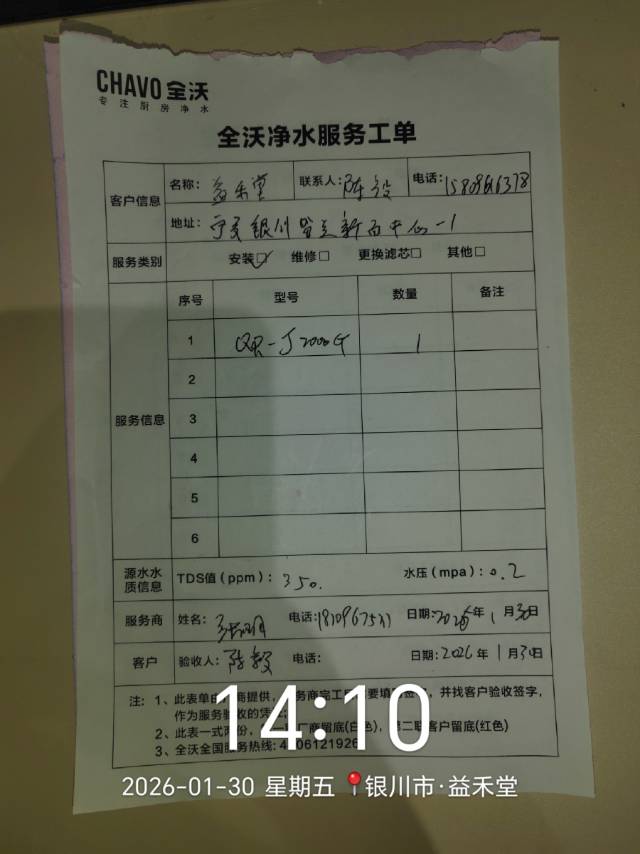 CHAVO 全沃
专注厨房净水
全沃净水服务工单
客户信息
名称: 益禾堂 联系人: 陈毅 电话:
地址: 宁夏银川 中心-1
服务类别 安装☑ 维修□ 更换滤芯□ 其他□
服务信息
序号 型号 数量 备注
1 QR-J2000G 1
2
3
4
5
6
源水水质信息 TDS值(ppm): 350. 水压(mpa): 0.2
服务商 姓名: 电话: 日期: 2026年1月30日
客户 验收人: 陈毅 电话: 日期: 2026年1月30日
注: 1、此表单由 商提供, 务商完工 要填 , 并找客户验收签字,
作为服务验收的凭
2、此表一式 份, 厂商留底(白色), 第二联客户留底(红色)
3、全沃全国服务热线: 4 06121926
14:10
2026-01-30 星期五 银川市·益禾堂